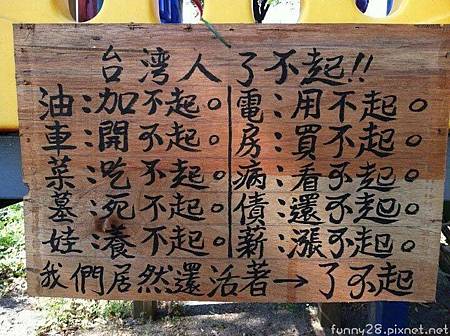 台湾人了不起!!
油:加不起。
車:開不起。
菜:吃不起。
墓:死不起。
娃:養不起。
電:用不起。
房:買不起。
病:看不起。
債:還不起。
薪:漲不起。
我們居然還活著→了不起
funny28.pixnet.net